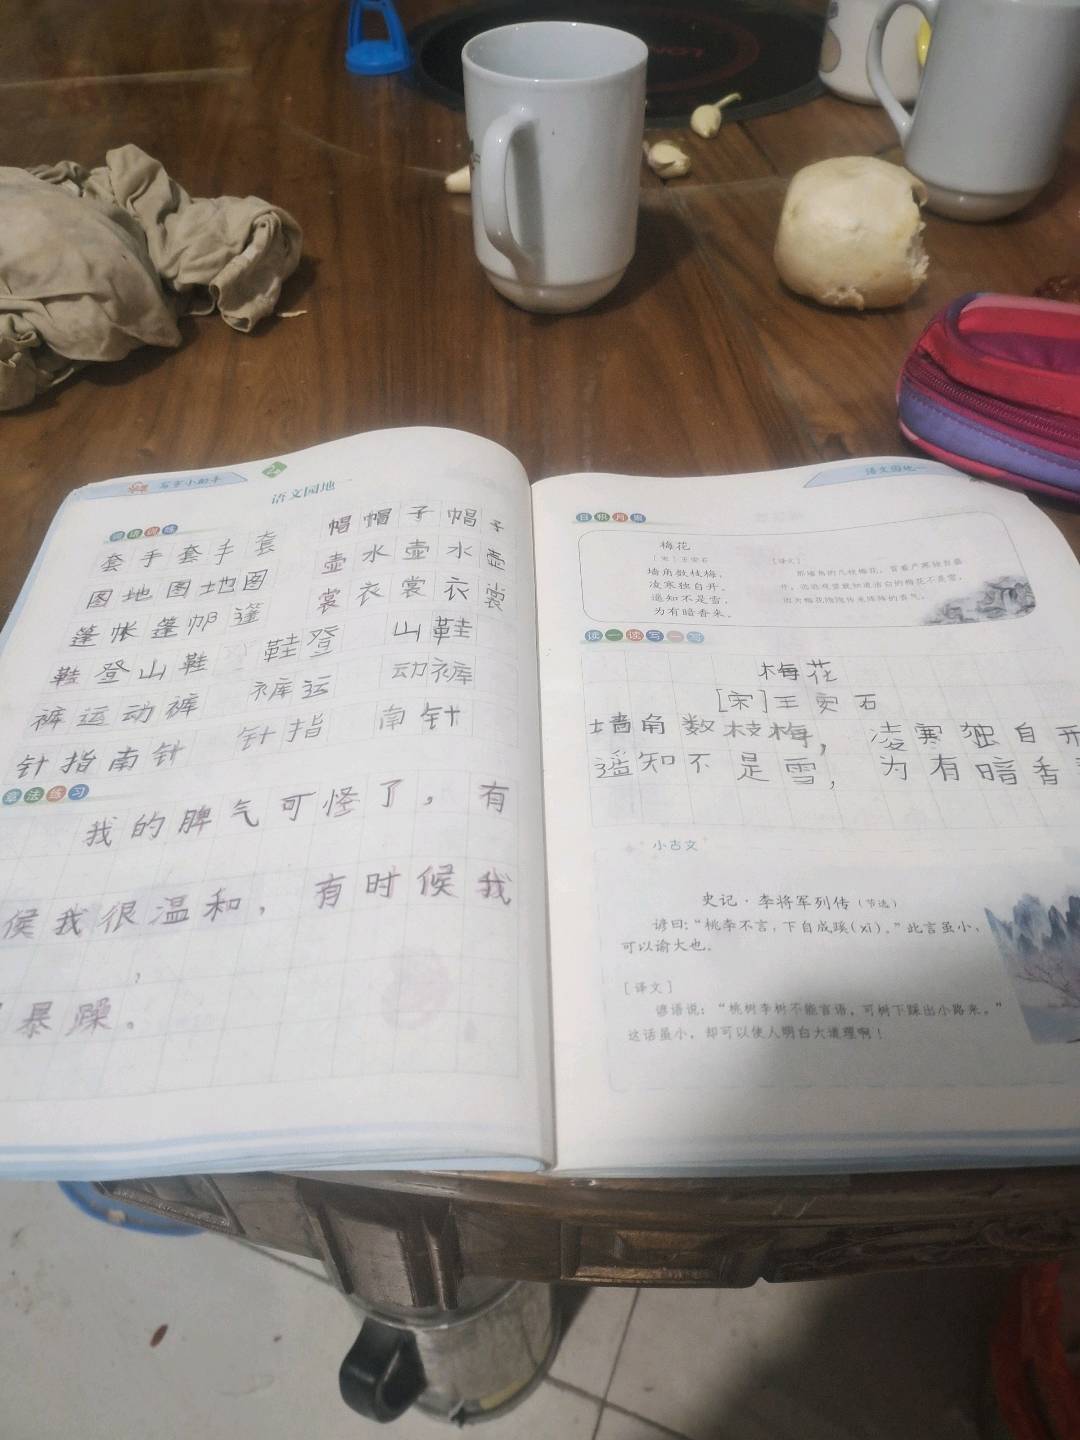 写字小助手
语文园地一
词语训练
套 手 套 手 套
帽 帽 子 帽 子
图 地 图 地 图
壶 水 壶 水 壶
篷 帐 篷 帐 篷
裳 衣 裳 衣 裳
鞋 登 山 鞋 鞋 登 山 鞋
裤 运 动 裤 裤 运 动 裤
针 指 南 针 针 指 南 针
章法练习
我的脾气可怪了，有
侯我很温和，有时候我
暴躁。
语文园地一
日积月累
梅花
［宋］王安石
墙角数枝梅，
凌寒独自开。
遥知不是雪，
为有暗香来。
［译文］
那墙角的几枝梅花，冒着严寒独自盛
开，远远观望就知道洁白的梅花不是雪，
因为梅花隐隐传来阵阵的香气。
读一读写一写
梅花
[宋]王安石
墙角数枝梅，凌寒独自开
遥知不是雪，为有暗香
小古文
史记·李将军列传（节选）
谚曰：“桃李不言，下自成蹊(xī)。”此言虽小，
可以谕大也。
［译文］
谚语说：“桃树李树不能言语，可树下踩出小路来。”
这话虽小，却可以使人明白大道理啊！